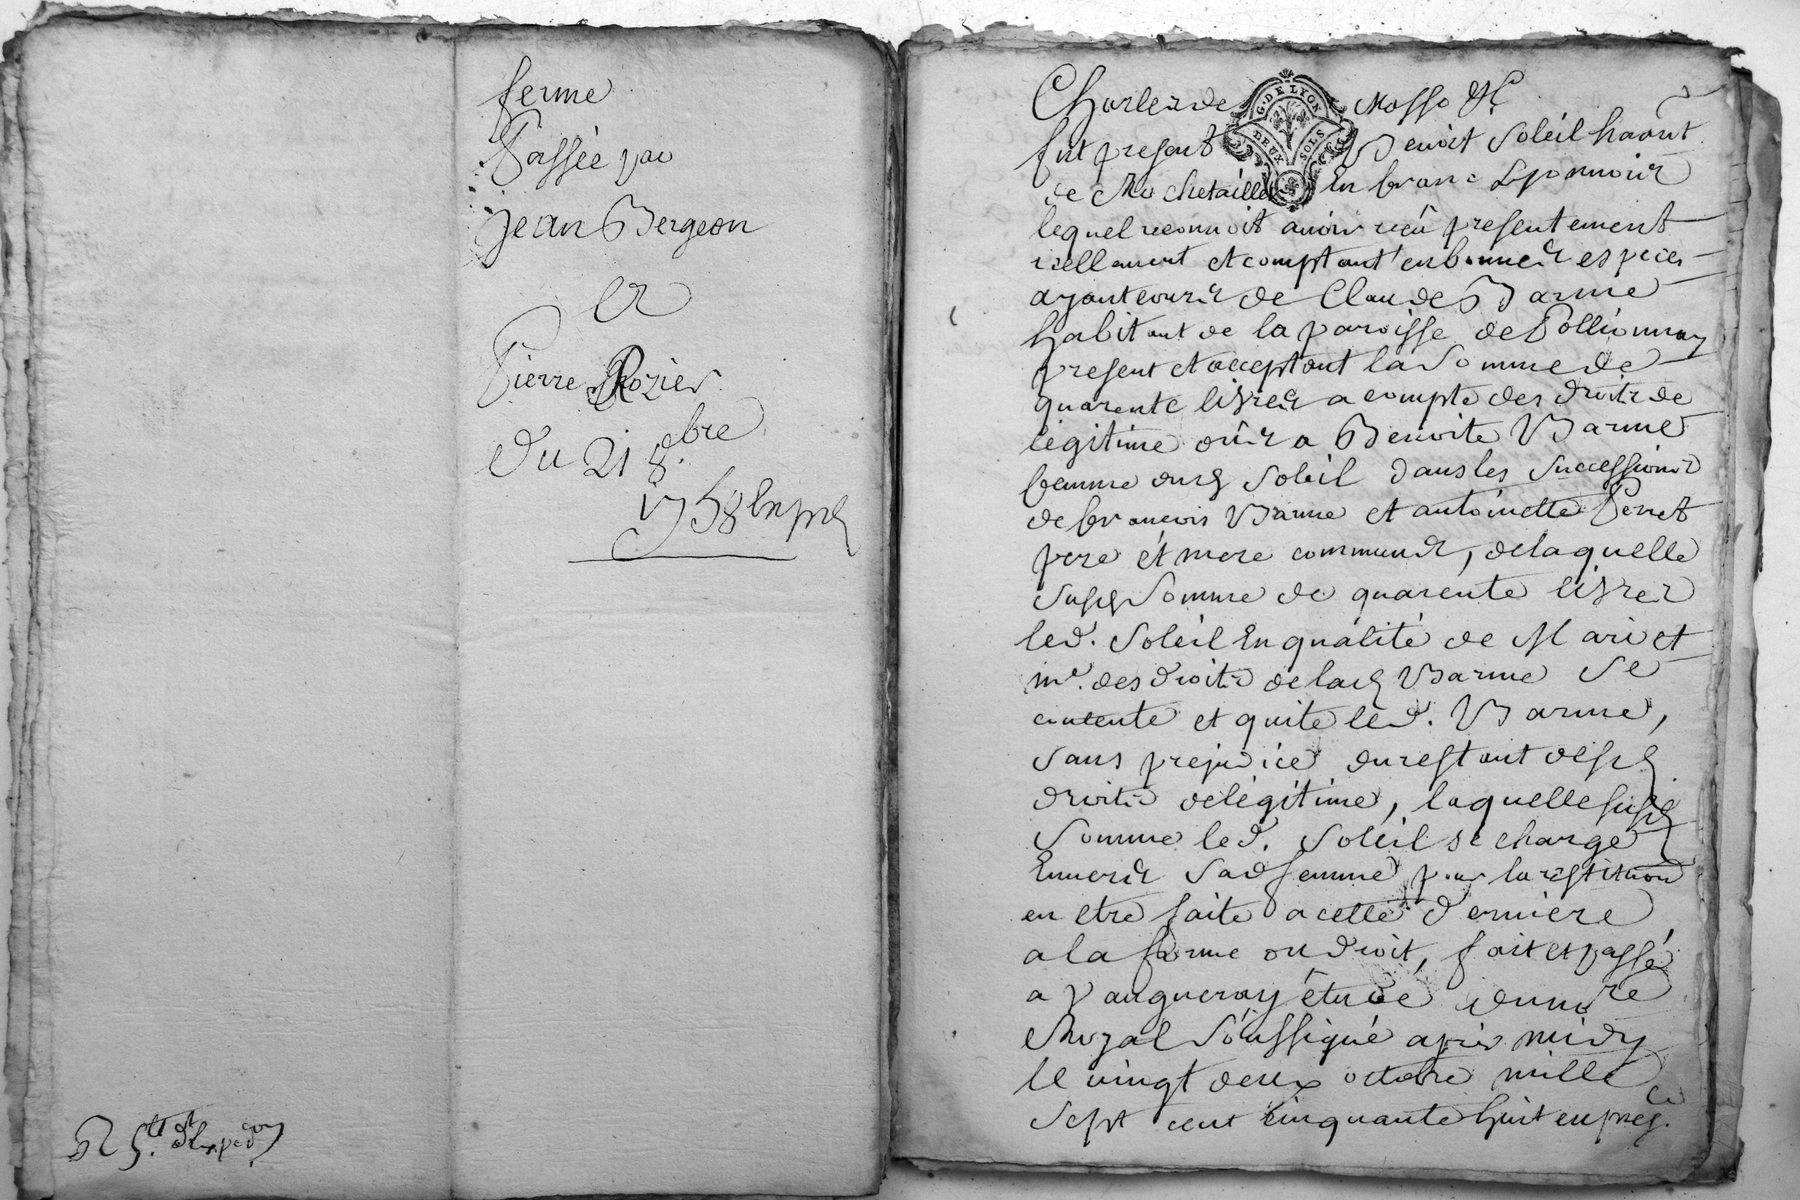 ferme
Passée par
jean Bergeon
et
Pierre Rozier
Du 21 8.bre
1758 Exped
G. DE LYON
DEUX SOLS
fut present Benoit Soleil haônt
de Rochetaillée En franc Lyonnoir
lequel reconnoit avoir reçû presentement
réellement et comptant en bonnes especes
ayant cours de Claude Barme
habitant de la paroisse de Pollionnay
present et acceptant la Somme de
quarente livres a compte des droits de
legitime dûs a Benoite Barme
femme dud Soleil dans les Successions
de francois Barme et antoinette Perret
pere et mere communs, de laquelle
susd Somme de quarente livres
led. Soleil En qualité de Mari et
me. des droits de lad Barme Se
contente et quite led. Barme,
Sans prejudice du restant desd
droits de légitime, laquelle susd
Somme led. Soleil se charge
Envers Sad femme pour la restitution
en etre faite a cette derniere
a la forme du droit, fait et passé
a Vaugneray étude du nre
Royal Soussigné après midy
le vingt deux octobre mille
Sept cent cinquante huit en prce.